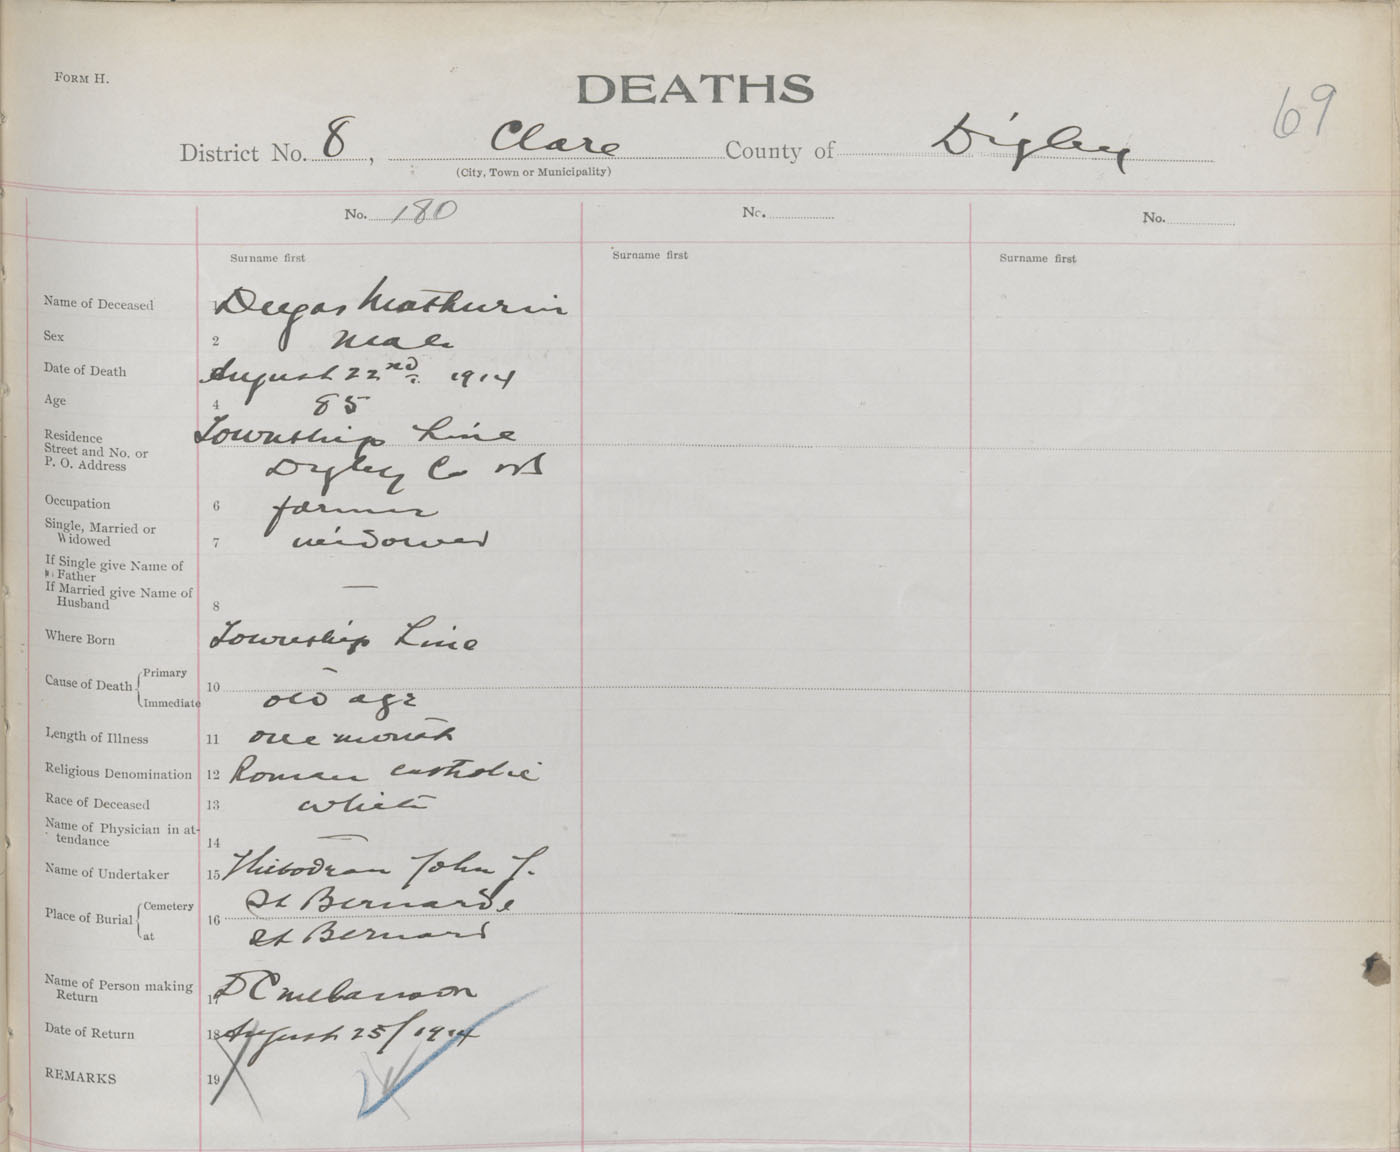 FORM H.
DEATHS
69
District No. 8, Clare County of Digby
(City, Town or Municipality)
No. 180 No. No.
Surname first Surname first Surname first
Name of Deceased 1 Deugas Mathurin
Sex 2 Male
Date of Death August 22nd 1914
Age 4 85
Residence Street and No. or P. O. Address Township Line
Digby Co NS
Occupation 6 farmer
Single, Married or Widowed 7 widowed
If Single give Name of Father
If Married give Name of Husband 8 —
Where Born Township Line
Cause of Death { Primary 10 —
Immediate old age
Length of Illness 11 one month
Religious Denomination 12 Roman catholic
Race of Deceased 13 white
Name of Physician in attendance 14 —
Name of Undertaker 15 Thibodeau John F.
Place of Burial { Cemetery 16 St Bernards
at St Bernard
Name of Person making Return 17 D C Melanson
Date of Return 18 August 25/1914
REMARKS 19